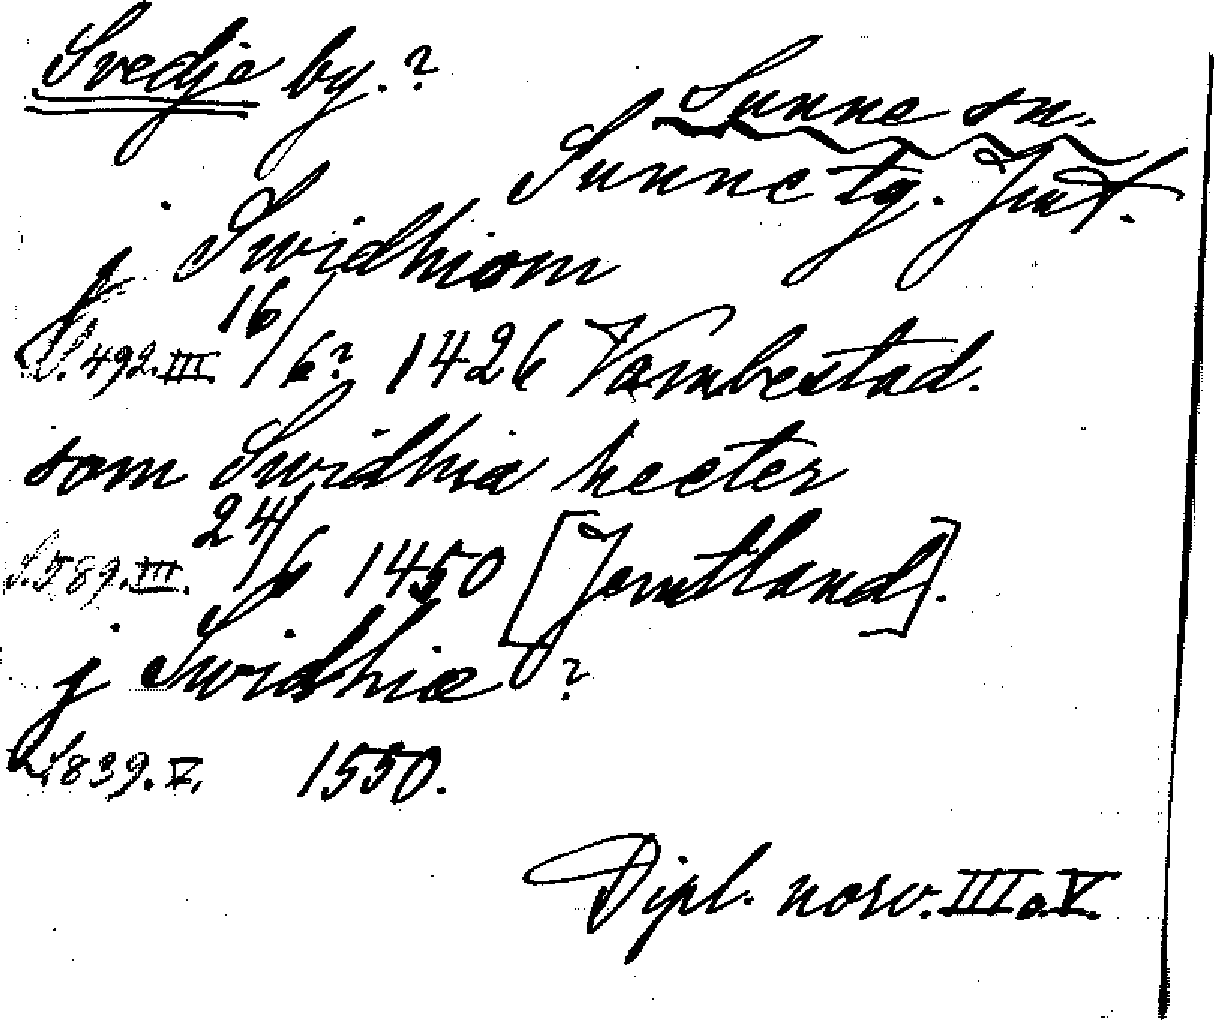 Svedje by.?
Sunne sn.
Sunne tg. Jmt.
j Swidhiom
S. 492. III. 16/6? 1426 Vambestad.
som Swidhia heeter
S. 589. III. 24/6 1450 [Jemtland].
j Swidhiæ ?
S. 839. V. 1550.
Dipl. norv. III o. V.